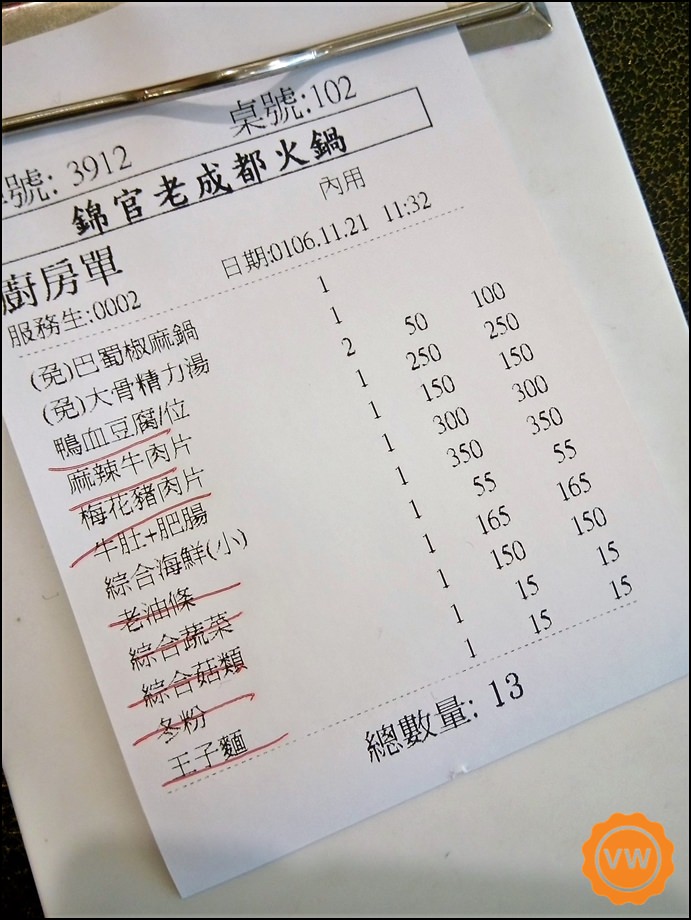 桌號:102
號: 3912
錦官老成都火鍋
內用
廚房單
日期:0106.11.21 11:32
服務生:0002
(免)巴蜀椒麻鍋 1
(免)大骨精力湯 1
鴨血豆腐/位 2 50 100
麻辣牛肉片 1 250 250
梅花豬肉片 1 150 150
牛肚+肥腸 1 300 300
綜合海鮮(小) 1 350 350
老油條 1 55 55
綜合蔬菜 1 165 165
綜合菇類 1 150 150
冬粉 1 15 15
王子麵 1 15 15
總數量: 13
VW